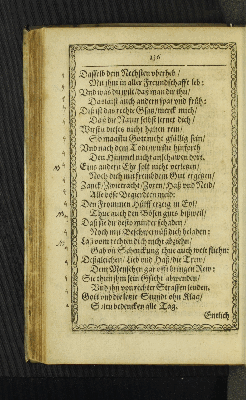 136
Dasselb dem Nechsten vberheb/
Den ihm in aller Freundschafft leb:
Vnd was du wilt/ daß man dir thu/
Das laist auch andern spat vnd früh:
Diß ist das rechte Gsatz/ merck mich/
Das die Natur selbst lernet dich/
Wirstu dieses nicht halten rein/
So magstu Gott nicht gfällig sein/
Vnd nach dem Tod/ mustu hinforth
Den Himmel nicht anschawen dort.
Eim andern Ehr solt nicht verletzen/
Noch dich mit frembdem Gut ergetzen/
Zanck/ Zwietracht/ Zoren/ Haß vnd Neid/
Alle böse Begierden meid:
Den Frommen Hülff erzeig in Eyl/
Thue auch den Bösen guts bißweil/
Daß sie dir desto minder schaden/
Noch mit Beschwernuß dich beladen:
Laß vom rechten dich nicht abziehn/
Gab vnd Schenckung thue auch weit fliehn:
Deßgleichen/ Lieb vnd Haß/ die Trew/
Dem Menschen gar offt bringen Rew:
Sie thun ihm sein Gsicht abwenden/
Vnd ihn von rechter Strassen lenden.
Gott vnd die letzte Stundt ohn Klag/
Soltu bedencken alle Tag.
Entlich